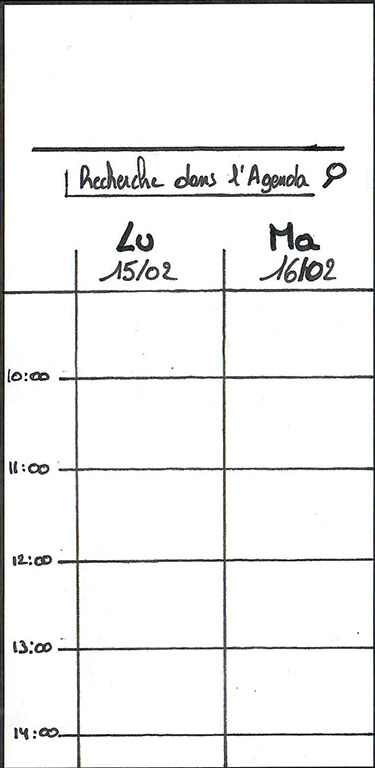 Recherche dans l'Agenda
Lu Ma
15/02 16/02
10:00
11:00
12:00
13:00
14:00